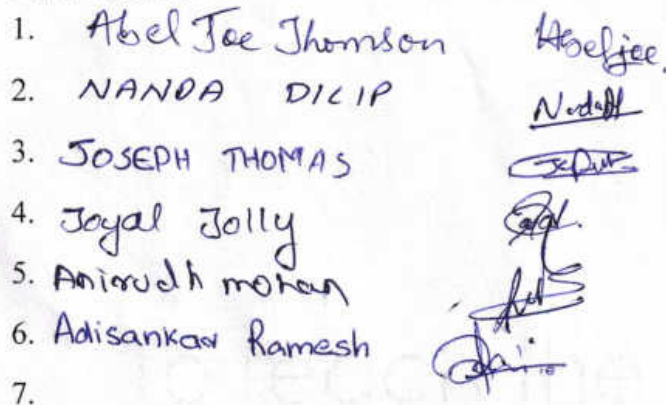 1. Abel Joe Thomson Abeljee.
2. NANDA DILIP
3. JOSEPH THOMAS
4. Joyal Jolly
5. Anirudh mohan
6. Adisankar Ramesh
7.